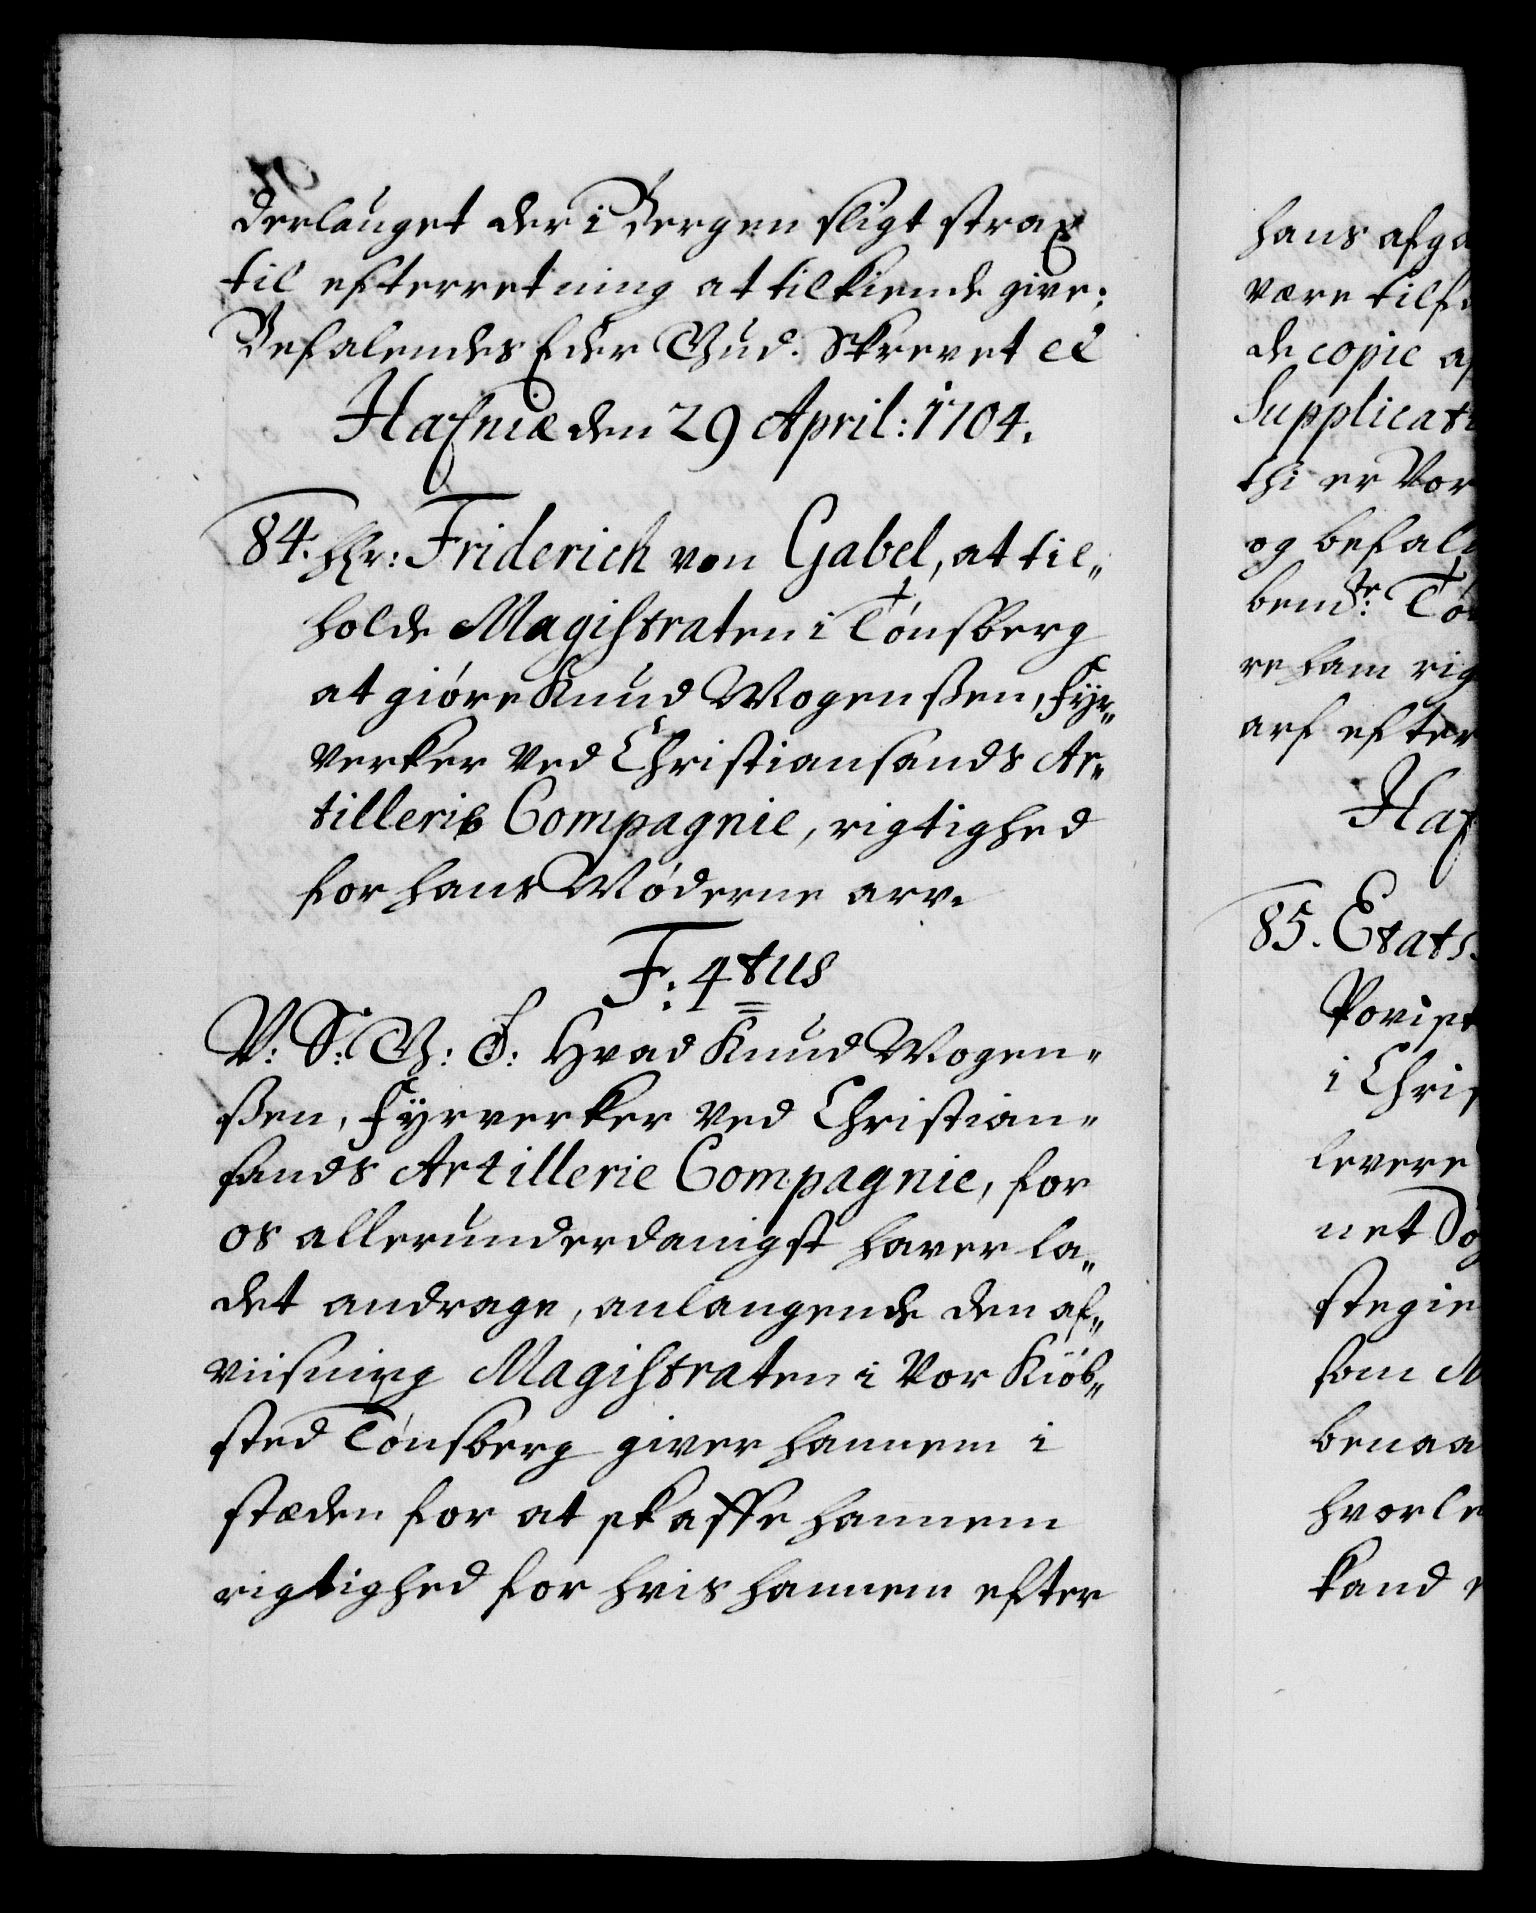 derlauget der i Bergen sligt strax
til efterretning at tilkiende give;
Befalendes Eder Gud. Skrevet el
Hafniæ den 29 April: 1704.
84. Hr: Friderich von Gabel, at til„
holde Magistraten i Tønsberg
at giøre Knud Mogensen, Fyr„
verker ved Christiansands Ar„
tillerie Compagnie, rigtighed
for hans Møderne arv.
F: 4tus
V: S: G: T: Hvad Knud Mogen„
sen, Fyrverker ved Christian„
sands Artillerie Compagnie, for
os allerunderdanigst haver la„
det andrage, anlangende den af„
viisning Magistraten i Vor Kiøb„
sted Tønsberg giver hannem i
stæden for at skaffe hannem
rigtighed for hvis hannem efter
hans afga
være tilfa
de copie af
Supplicati
thi er Vor
og befal
bemte: Tøn
re ham rig
arf efter
Haf
85. Etats
i Chris
levere
net
stegie
som M
benaa
hvorle
kand